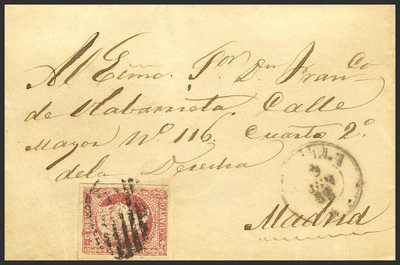 Al Exmo. Sor. Dn. Franco
de Olabarrieta. Calle
Mayor Nº 116, Cuarto 2º
de la Derecha
Madrid